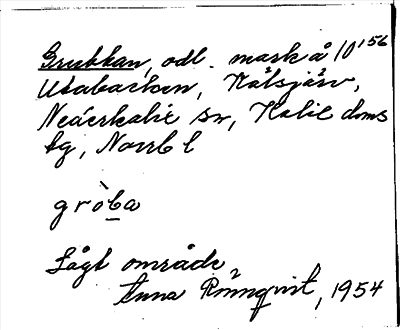 Grubban, odl. mark å 10¹⁵⁶
Utabacken, Hålsjärv,
Nederkalix sn, Kalix doms
ag, Norrb l
gròba
Lågt område
Anna Rönnqvist, 1954